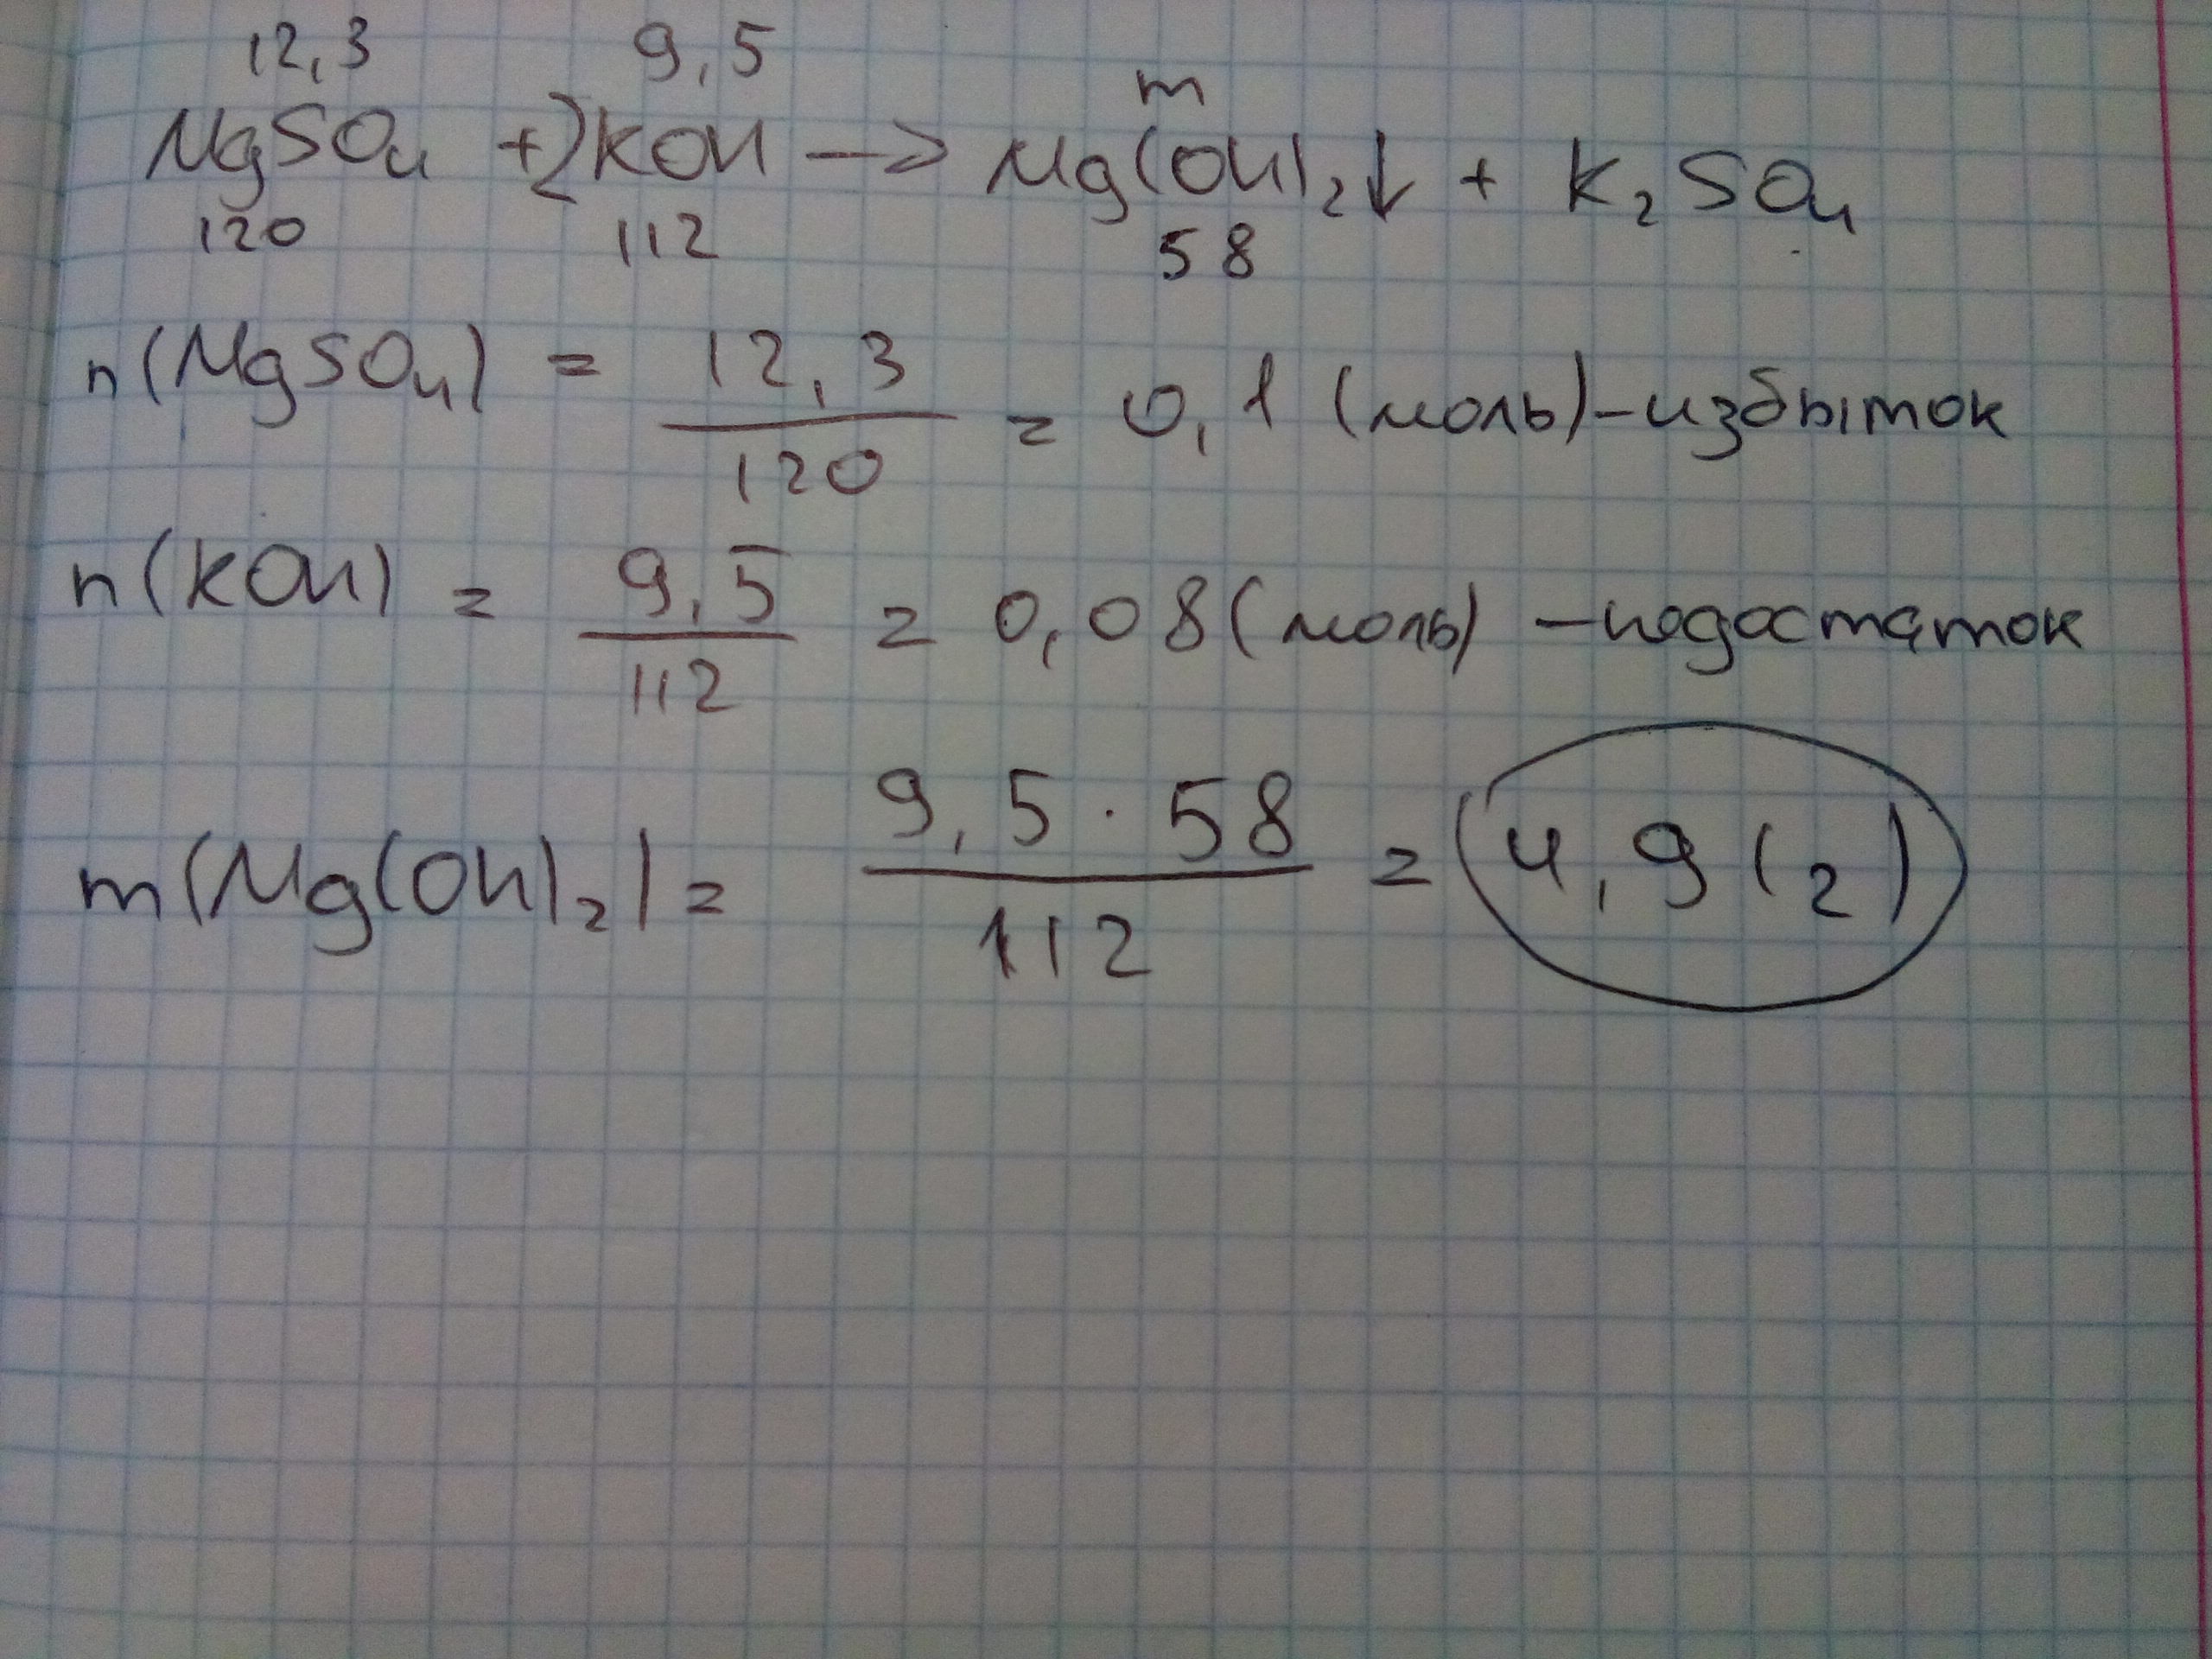 12,3 9,5 m
MgSO₄ + 2KOH → Mg(OH)₂↓ + K₂SO₄
120 112 58
n(MgSO₄) = 12,3/120 = 0,1 (моль) – избыток
n(KOH) = 9,5/112 = 0,08 (моль) – недостаток
m(Mg(OH)₂) = 9,5·58/112 = 4,9 (г)